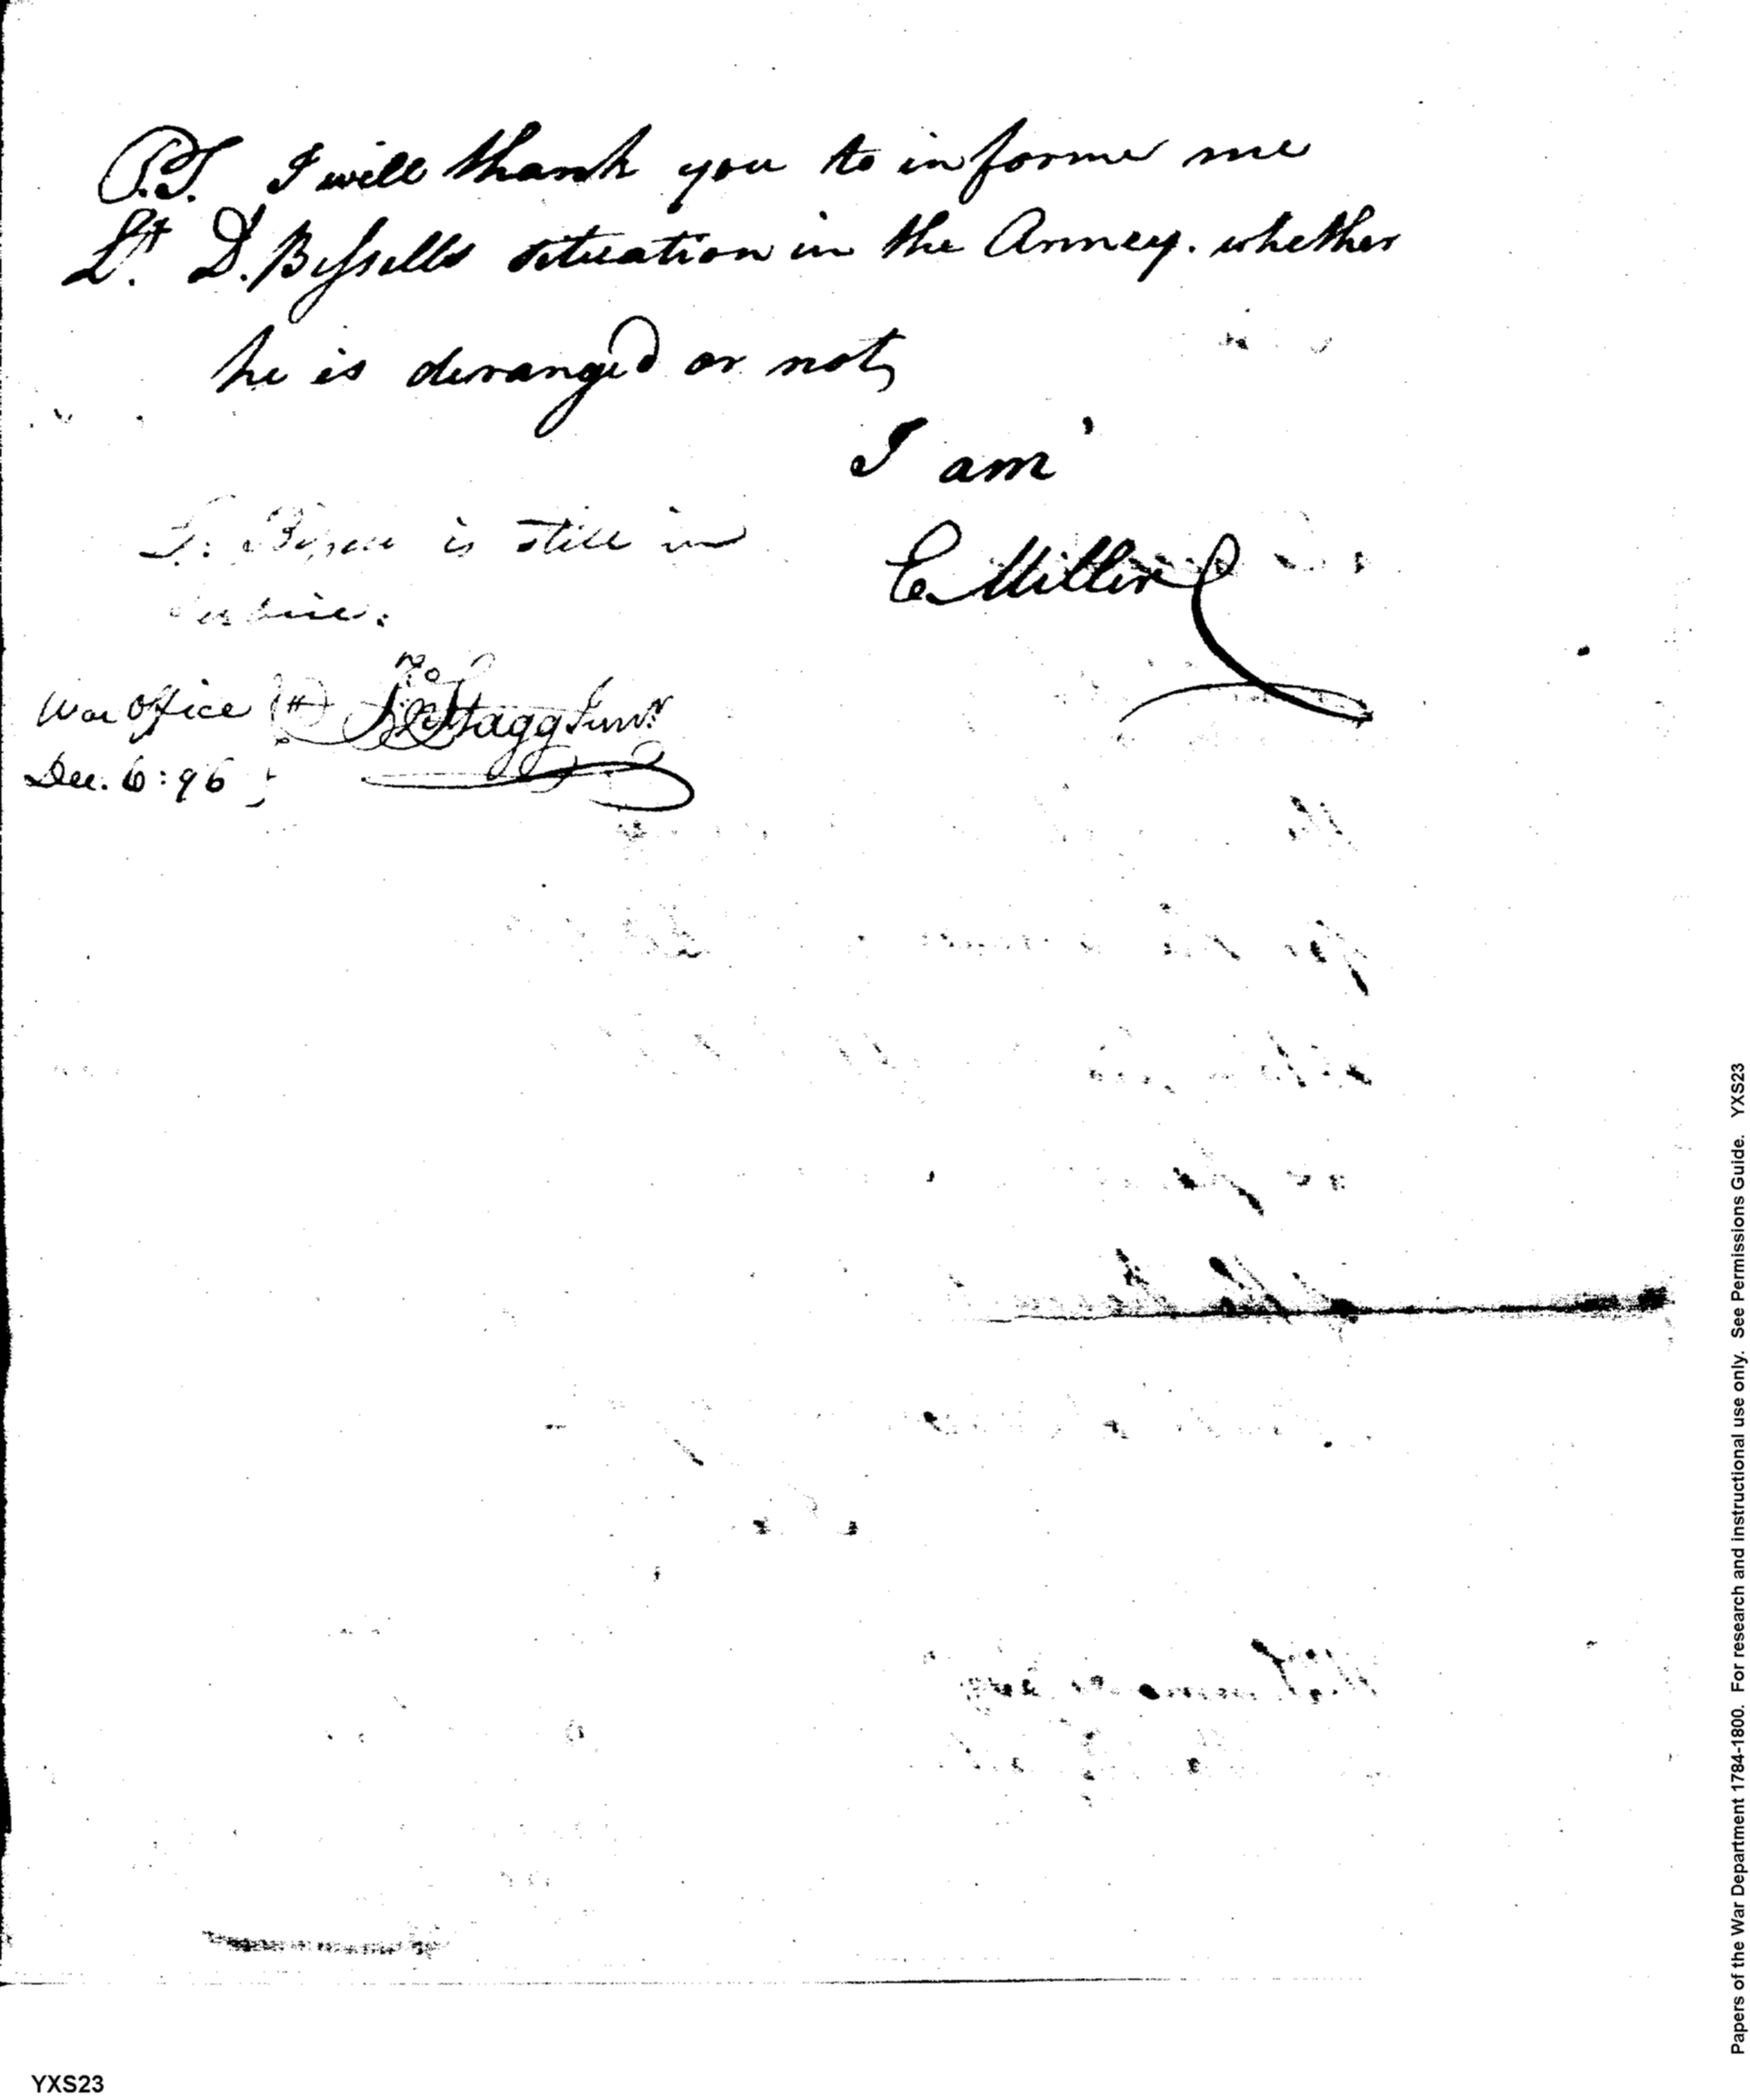 P.S. I will thank you to informe me
Lt. D. Bissells situation in the Armey. whether
he is deranged or not,
I am
C Miller
L. Bissell is still in
Service.
War Office
Jno Stagg Junr.
Dec. 6: 96
Papers of the War Department 1784-1800. For research and instructional use only. See Permissions Guide. YXS23
YXS23